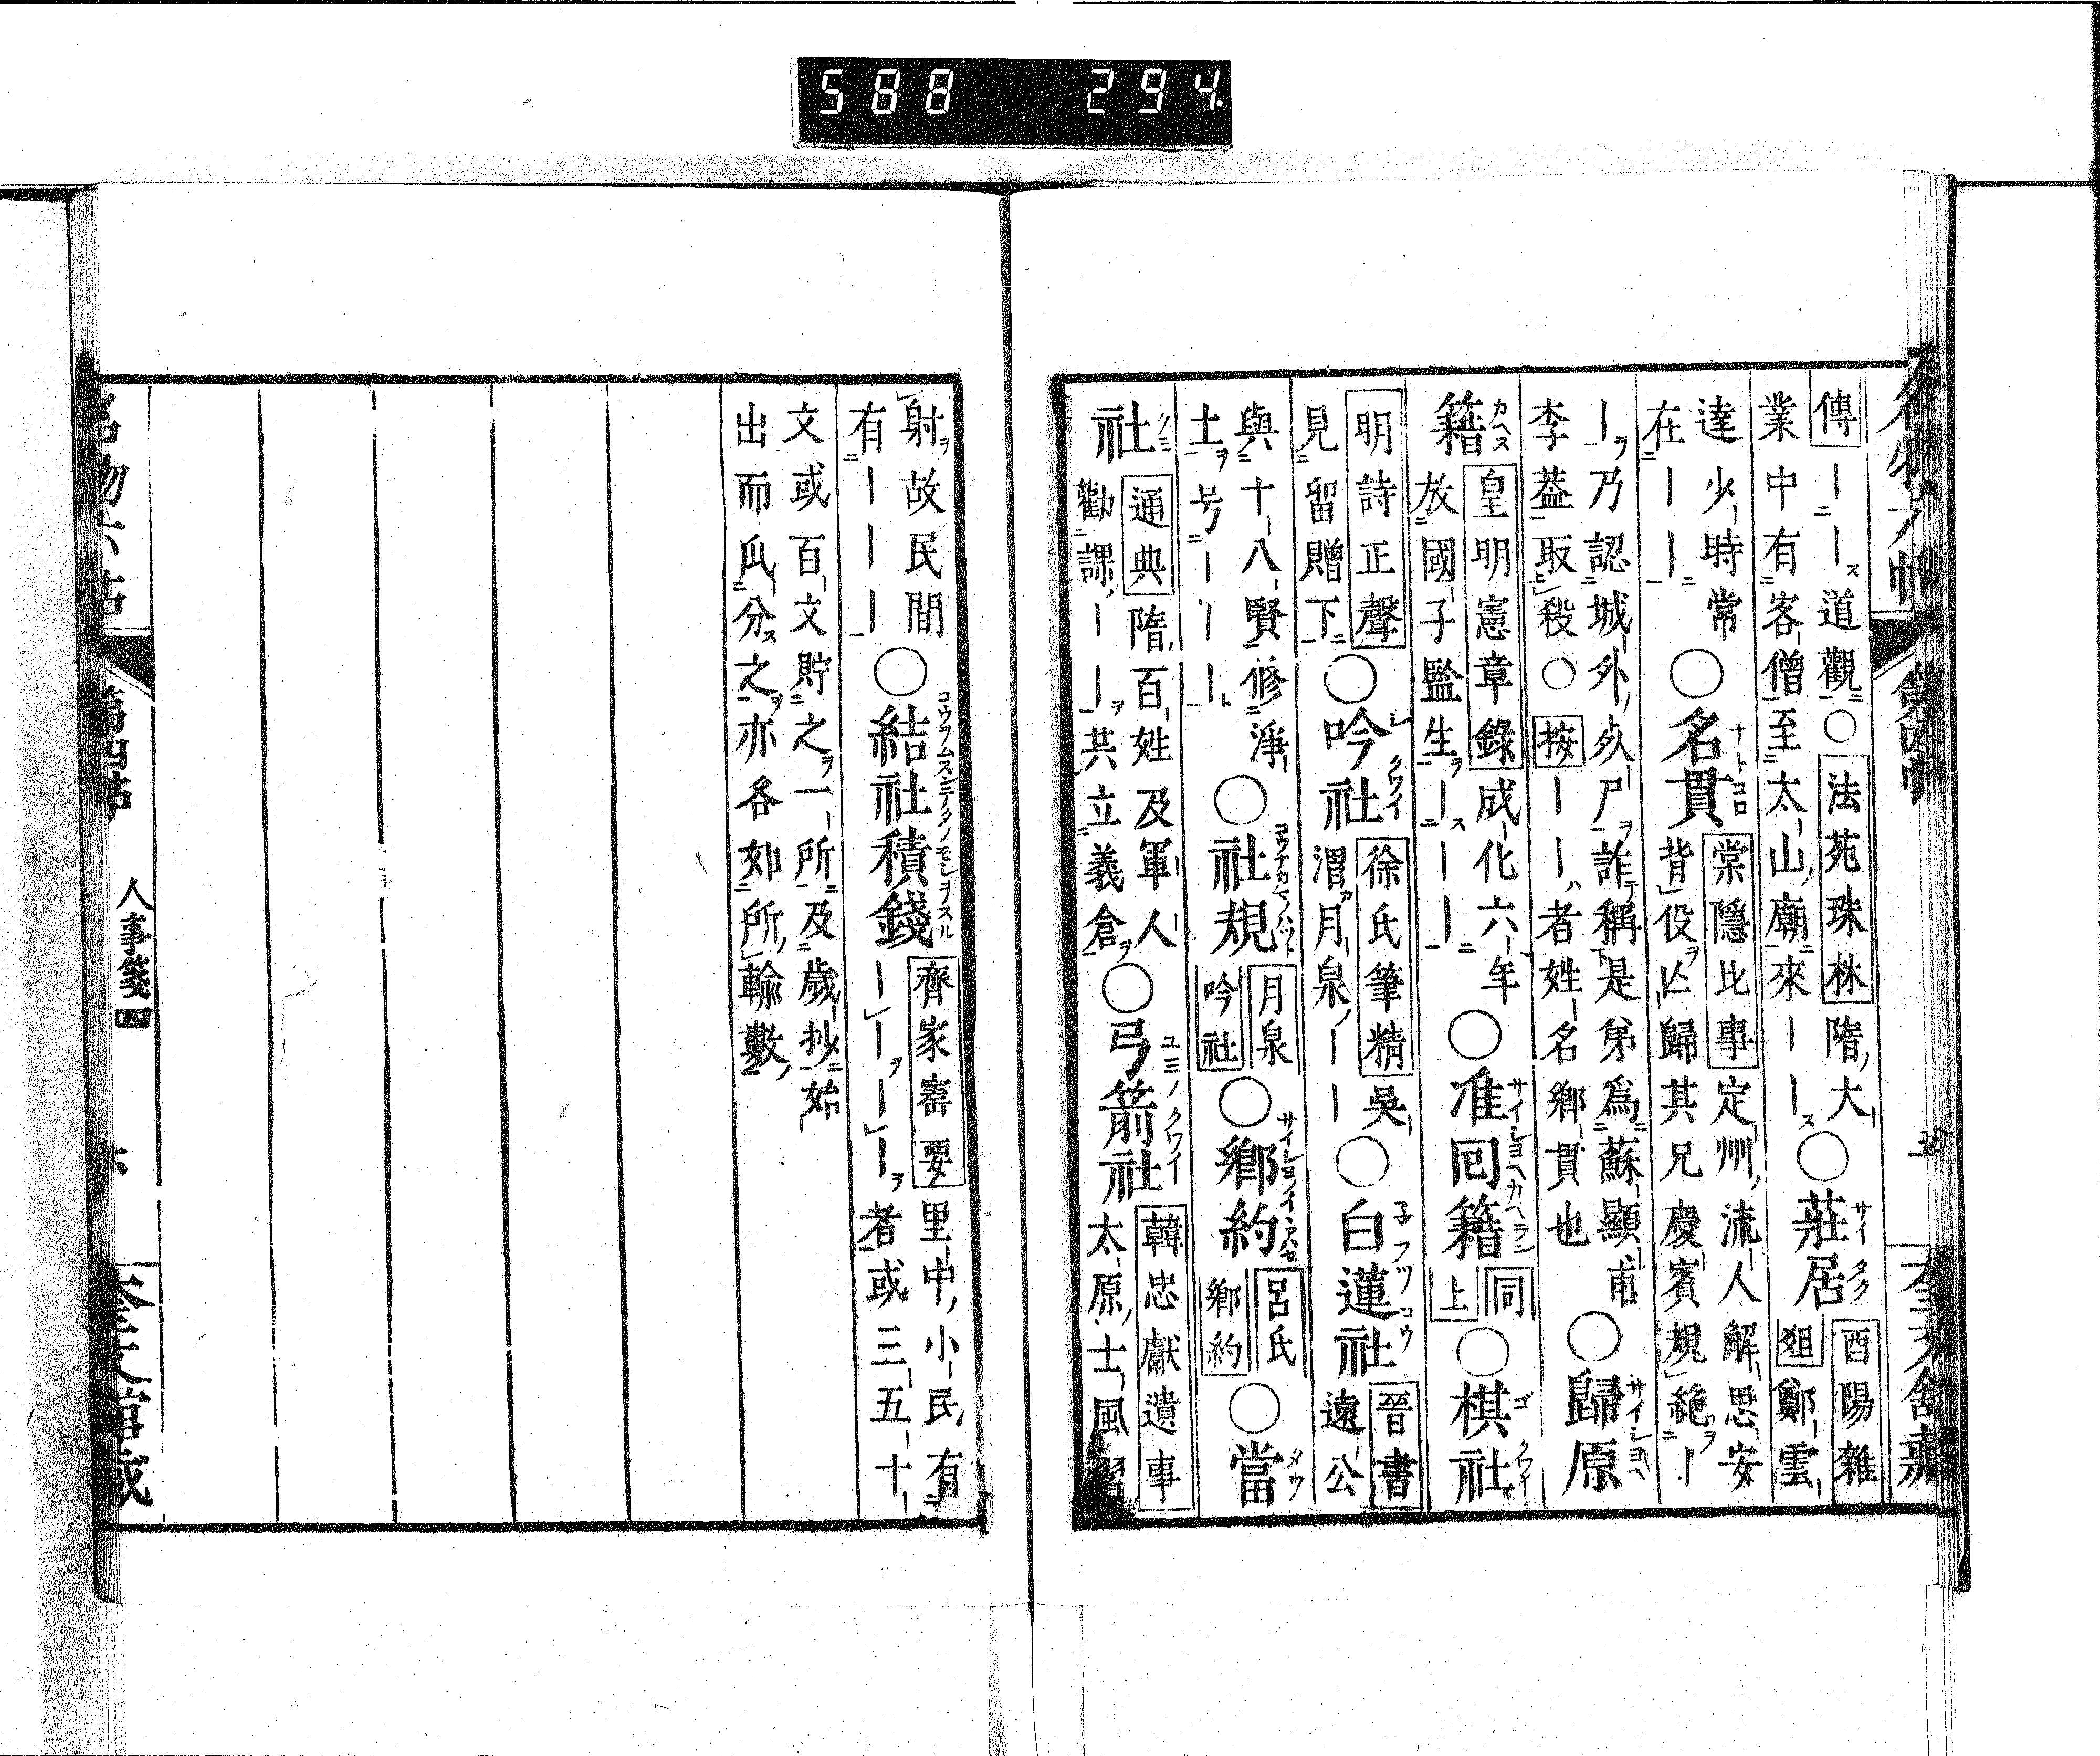 588 294
傳｜｜道觀○法苑珠林隋大
業中有客僧至太山廟來｜｜○莊居酉陽雜
俎鄭雲
達少時常
在｜｜○名貫棠隱比事定州流人解思安
背役亡歸其兄慶賓規絶｜
｜乃認城外死尸詐稱是弟爲蘇顯甫
李葢取殺○按｜｜者姓名鄉貫也○歸原
籍皇明憲章錄成化六年
放國子監生｜｜｜○准回籍同上○棋社
明詩正聲
見留贈下○吟社徐氏筆精吳
渭月泉｜｜○白蓮社晉書
遠公
與十八賢修淨
土号｜｜｜○社規月泉吟社○鄉約呂氏鄉約○當
社通典隋百姓及軍人
勸課｜｜共立義倉○弓箭社韓忠獻遺事
太原士風習
射故民間
有｜｜｜○結社積錢齊家寶要里中小民有
｜｜｜｜者或三五十
文或百文貯之一所及歲抄始
出而瓜分之亦各如所輸數
名物六帖 第四帖 人事箋四 六 奎文館藏